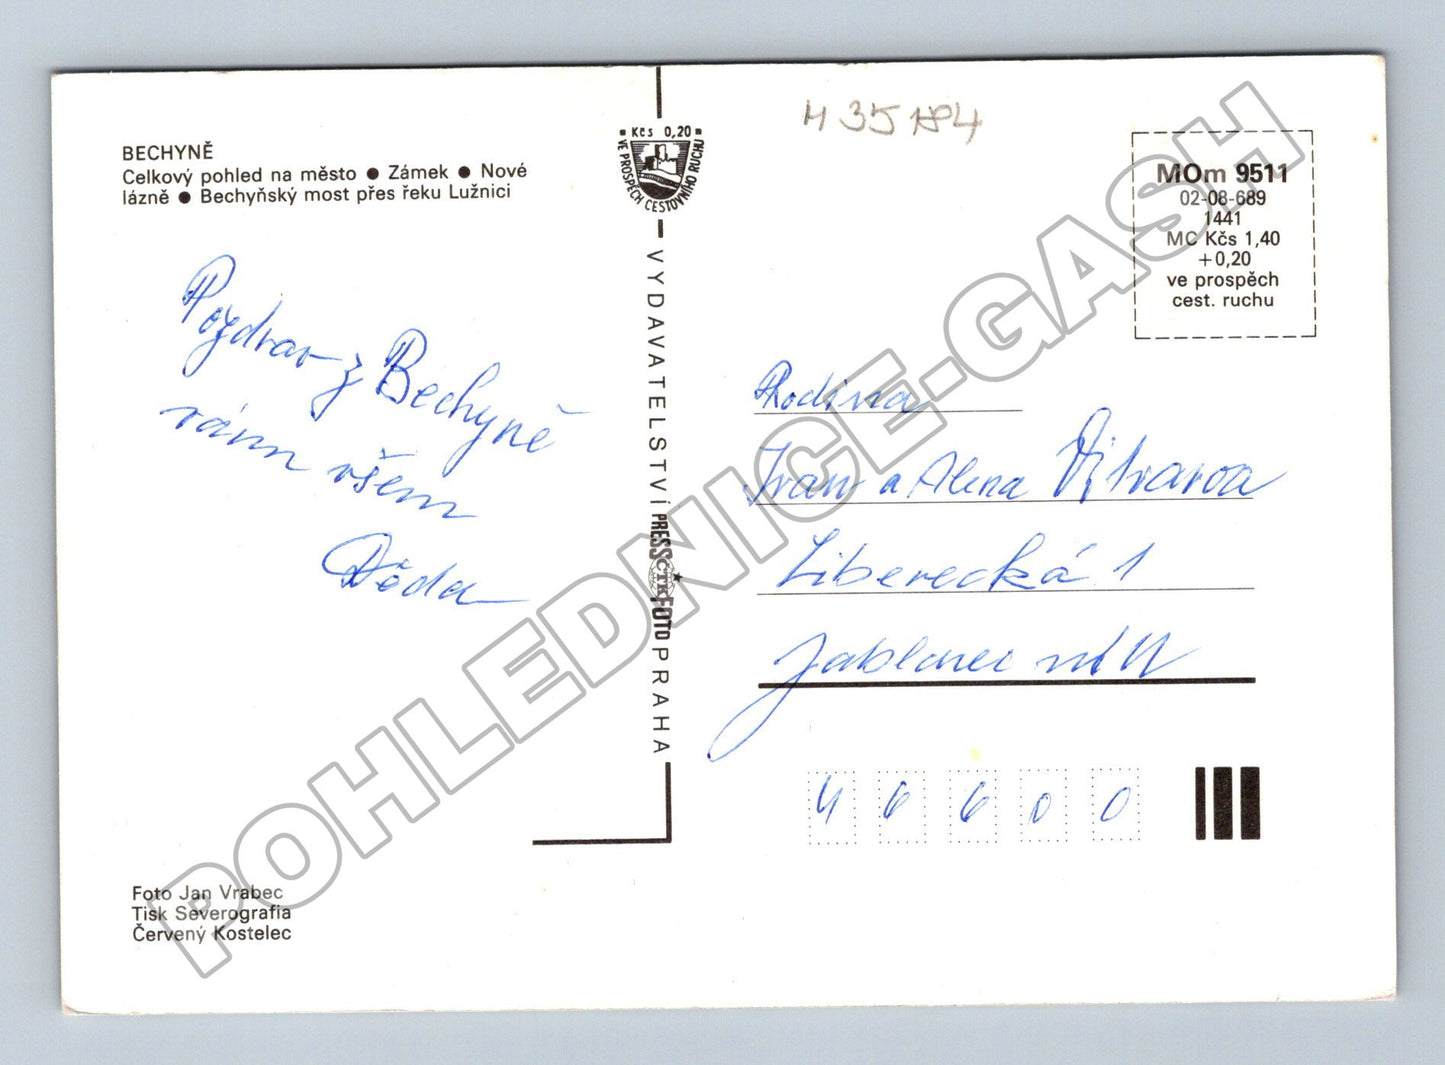 H 35184
BECHYNĚ
Celkový pohled na město ● Zámek ● Nové
lázně ● Bechyňský most přes řeku Lužnici
Kčs 0,20
VE PROSPĚCH CESTOVNÍHO RUCHU
MOm 9511
02-08-689
1441
MC Kčs 1,40
+0,20
ve prospěch
cest. ruchu
Pozdrav z Bechyně
vám všem
Děda
VYDAVATELSTVÍ PRESSFOTO PRAHA
ČTK
Rodina
Ivan a Alena
Liberecká 1
Jablonec n/N
46600
Foto Jan Vrabec
Tisk Severografia
Červený Kostelec
POHLEDNICE.GASH